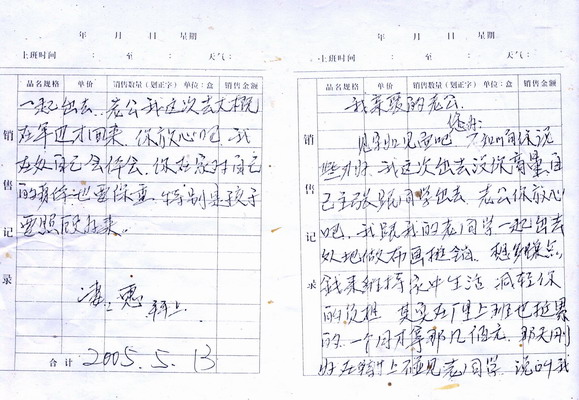 年 月 日 星期
上班时间 : 至 : 天气:
品名规格 单价 销售数量(划正字) 单位:盒 销售金额
销售记录
我亲爱的老公.
您好.
见字如见面吧 不知向你说
些为好. 我这次出去没你商量.自
己主张跟同学出去. 老公你放心
吧. 我跟我的老同学一起出去
外地做布画推销. 想多赚点
钱来维持家中生活 减轻你
的负担 其实在厂里上班也挺累
的. 一个月才拿那几佰元. 那天刚
好在街上碰见老同学. 说叫我
年 月 日 星期
上班时间 : 至 : 天气:
品名规格 单价 销售数量(划正字) 单位:盒 销售金额
销售记录
一起出去. 老公我这次去大概
在年边才回来. 你放心吧. 我
在外自己会体会. 你在家对自己
的身体也要保重. 特别是孩子
要照顾好来.
惠
合计 2005.5.13